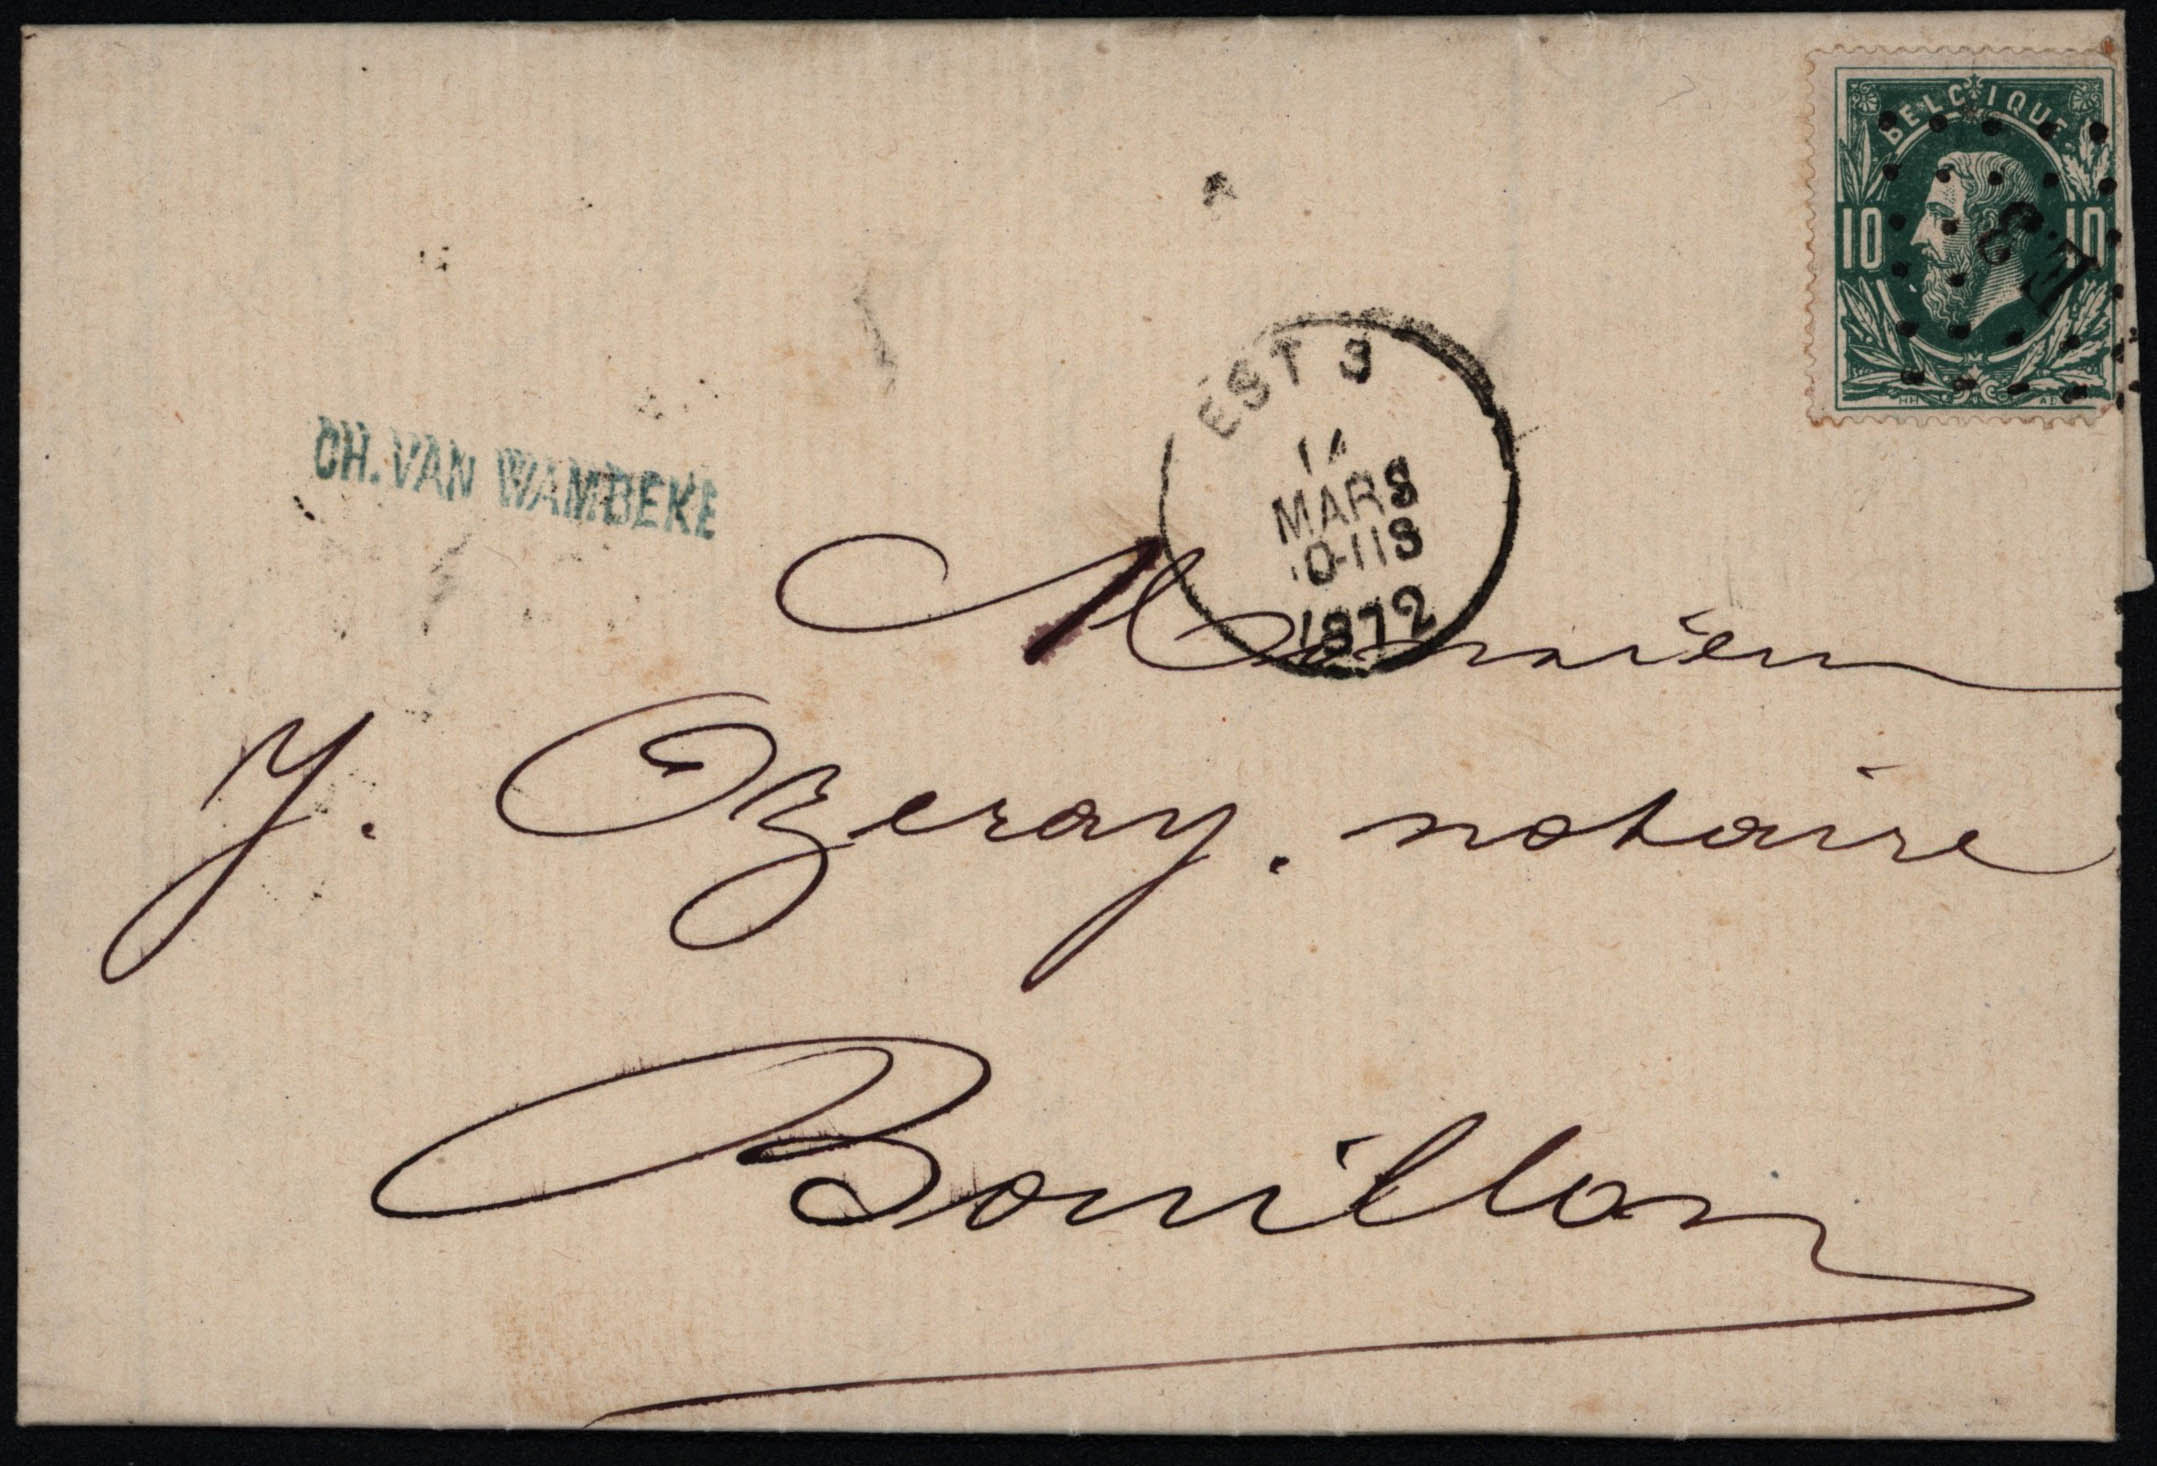 BELGIQUE
10 10
E.3
EST 3
14
MARS
10-11S
1872
CH. VAN WAMBEKE
Monsieur
J. Ozeray. notaire
Bouillon